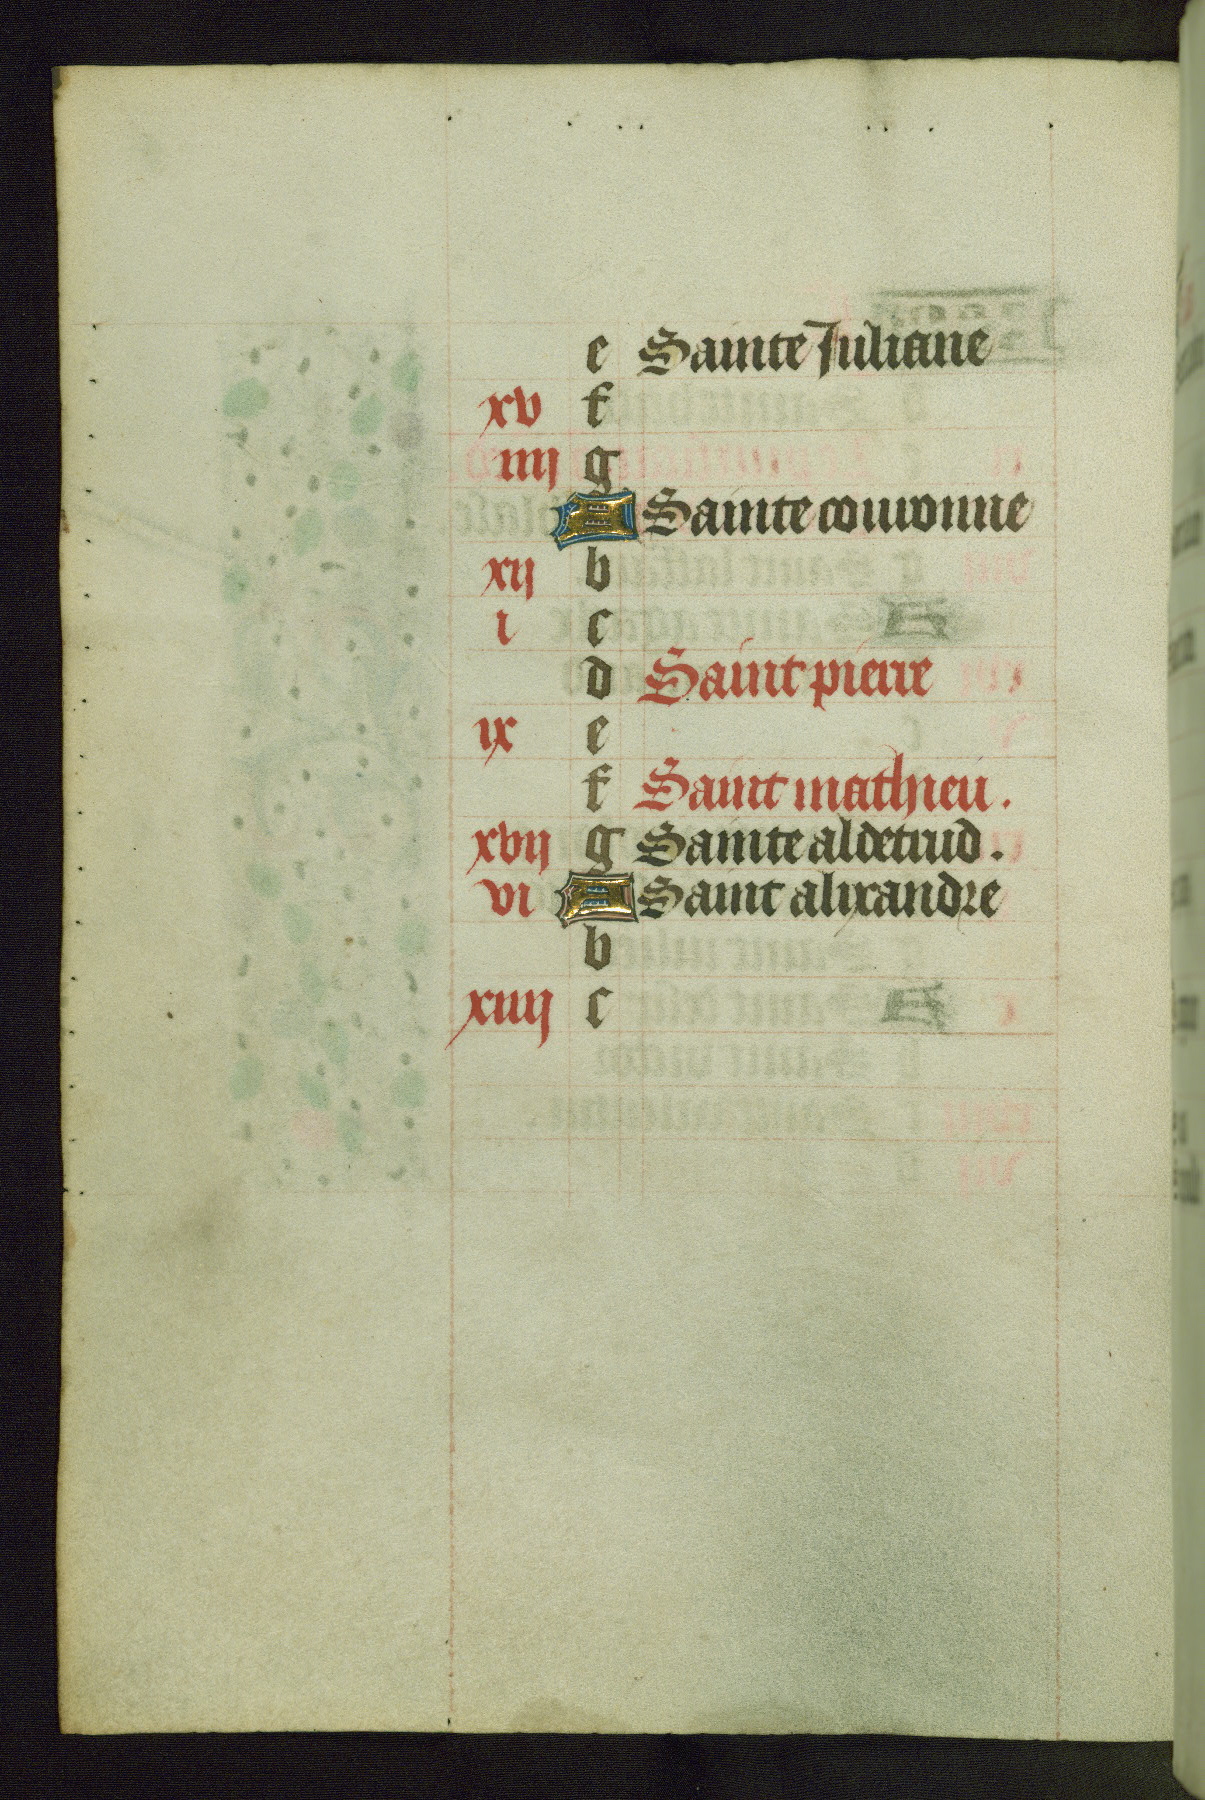 e Sainte Juliane
xv f
iiij g
A Sainte couronne
xij b
i c
d Saint pierre
ix e
f Saint mathieu.
xvij g Sainte aldetrud.
vi A Saint alixandre
b
xiiij c